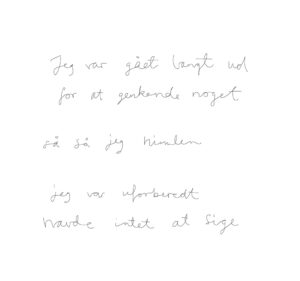 Jeg var gået langt ud
for at genkende noget
så så jeg himlen
jeg var uforberedt
havde intet at sige